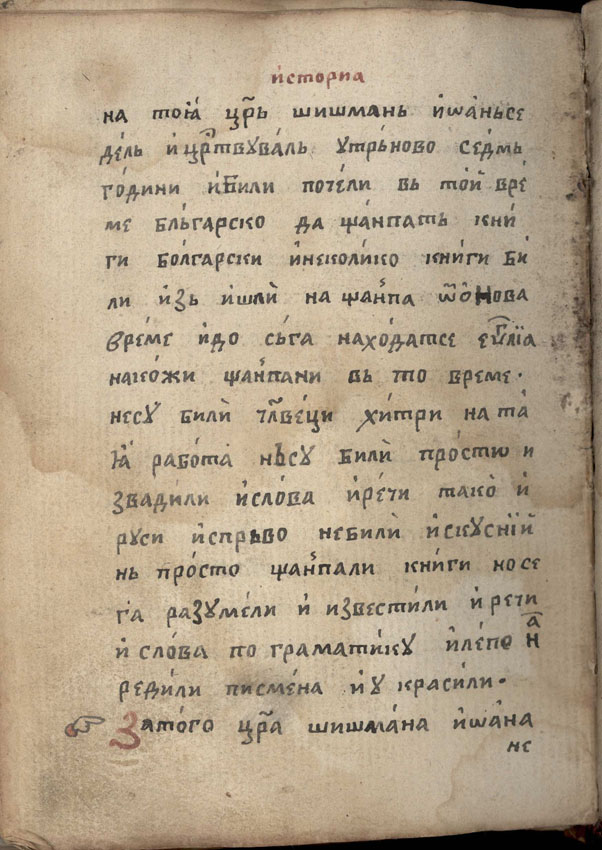 и҆сторїа
на тоꙗ҆̀ цр҃ь шишмань и҆ѡа́ньсе
де́ль и҆ цр҃твува́ль утрь́ново се́дмь
го́дини и҆били почели вь то́й вре́
ме бль́гарско да щáнпать кни́
ги бо́лгарски и҆неколи́ко книги би́
ли и҆зь и҆шлѝ на ща́нпа ѿо́нова
вре́ме и҆до сьга нахо́датсе еѵ҃лїа
нако́жи ща́нпани вь то вре́ме ·
несꙋ́ билѝ чл҃ве́ци хи́три на та́
ꙗ҆ рабо́та нь́сꙋ билѝ про́стѡ и
звади́ли и҆сло́ва и҆речи тако̀ и
рꙋси и҆спрьво неби́лѝ и҆скꙋснїй
нь про́сто ща́нпали книги но се
га̀ разꙋме́ли и҆ и҆звести́ли и҆ речи
и҆ сло́ва по грамати́кꙋ и҆ле́по на
реди́ли писме́на и҆у краси́ли ·
За́того цр҃а шишма́на и҆ѡа́на
не